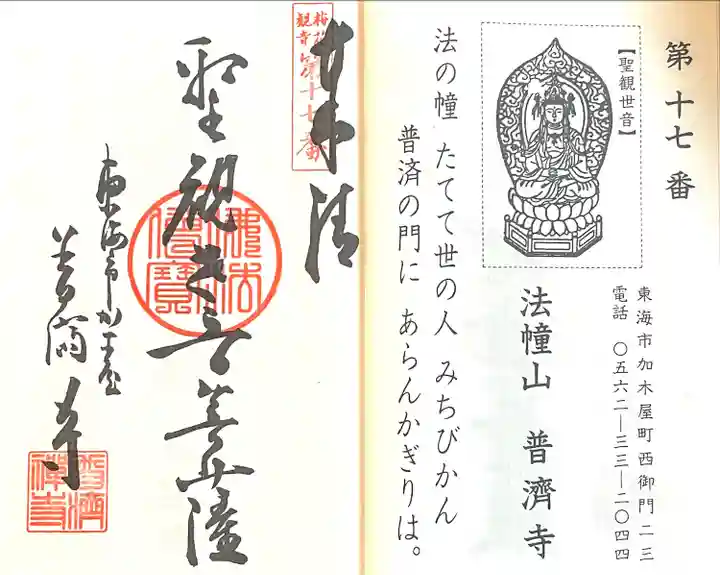 第十七番
東海市加木屋町西御門二三
電話 〇五六二―三三―二〇四四
【聖観世音】
法幢山 普濟寺
法の幢 たてて世の人 みちびかん
普済の門に あらんかぎりは。
奉拝
梅花
観音
第十七番
聖観世音菩薩
佛法僧寳
東海市加木屋
普濟寺
普濟禅寺